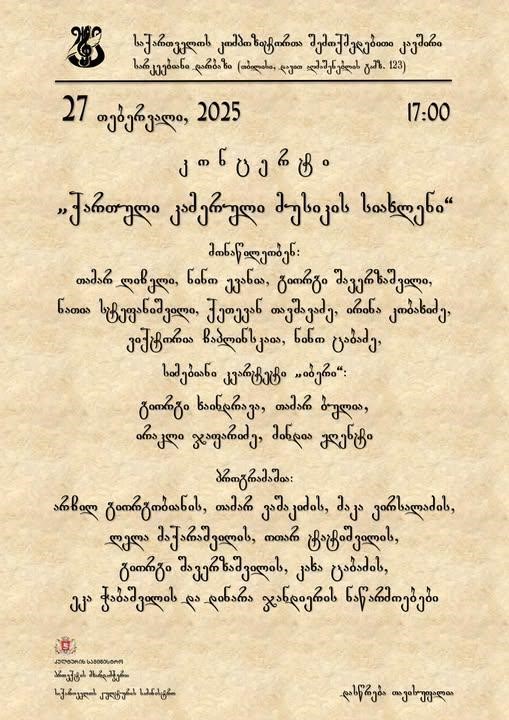 საქართველოს კომპოზიტორთა შემოქმედებითი კავშირი
სარკეებიანი დარბაზი (თბილისი, დავით აღმაშენებლის გამზ. 123)
27 თებერვალი, 2025 17:00
კონცერტი
„ქართული კამერული მუსიკის სიახლენი“
მონაწილეობენ:
თამარ ლიჩელი, ნინო ჟვანია, გიორგი შავერზაშვილი,
ნათია სტეფანიშვილი, ქეთევან თავშავაძე, ირინა კობახიძე,
ვიქტორია ჩაპლინსკაია, ნინო ცაბაძე,
სიმებიანი კვარტეტი „იბერი“:
გიორგი ხაინდრავა, თამარ ბულია,
ირაკლი ჯაფარიძე, მინდია უღენტი
პროგრამაშია:
არჩილ გიორგობიანის, თამარ ვაშაკიძის, მაკა ვირსალაძის,
ლელა მაქარაშვილის, ოთარ ტატიშვილის,
გიორგი შავერზაშვილის, კახა ცაბაძის,
ეკა ჭაბაშვილის და დინარა ჯანდიერის ნაწარმოებები
კულტურის სამინისტრო
პროექტის მხარდამჭერი
საქართველოს კულტურის სამინისტრო
დასწრება თავისუფალია